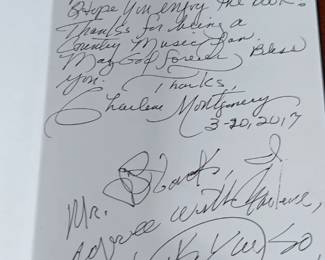 Hope you enjoy the book.
Thanks for being a
Country Music Fan.
May God forever Bless
You. Thanks,
Charlene Montgomery
3-20, 2017
Mr. I
agree with Charlene,